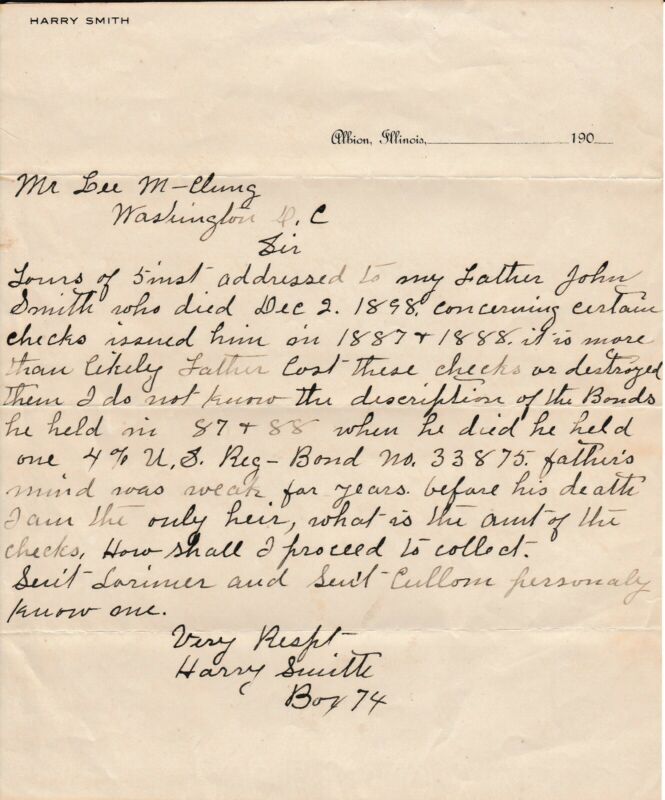 HARRY SMITH
Albion, Illinois, 190
Mr Lee M-Clung
Washington D. C
Sir
Yours of 5 inst addressed to my Father John
Smith who died Dec 2. 1898. concerning certain
checks issued him in 1887 + 1888. it is more
than likely Father Lost these checks or destroyed
them I do not know the description of the Bonds
he held in 87 + 88 when he died he held
one 4% U.S. Reg- Bond No. 33875. father's
mind was weak for years. before his death
I am the only heir, what is the amt of the
checks. How shall I proceed to collect.
Lorimer and Cullom personaly
know me.
Very Respt
Harry Smith
Box 74